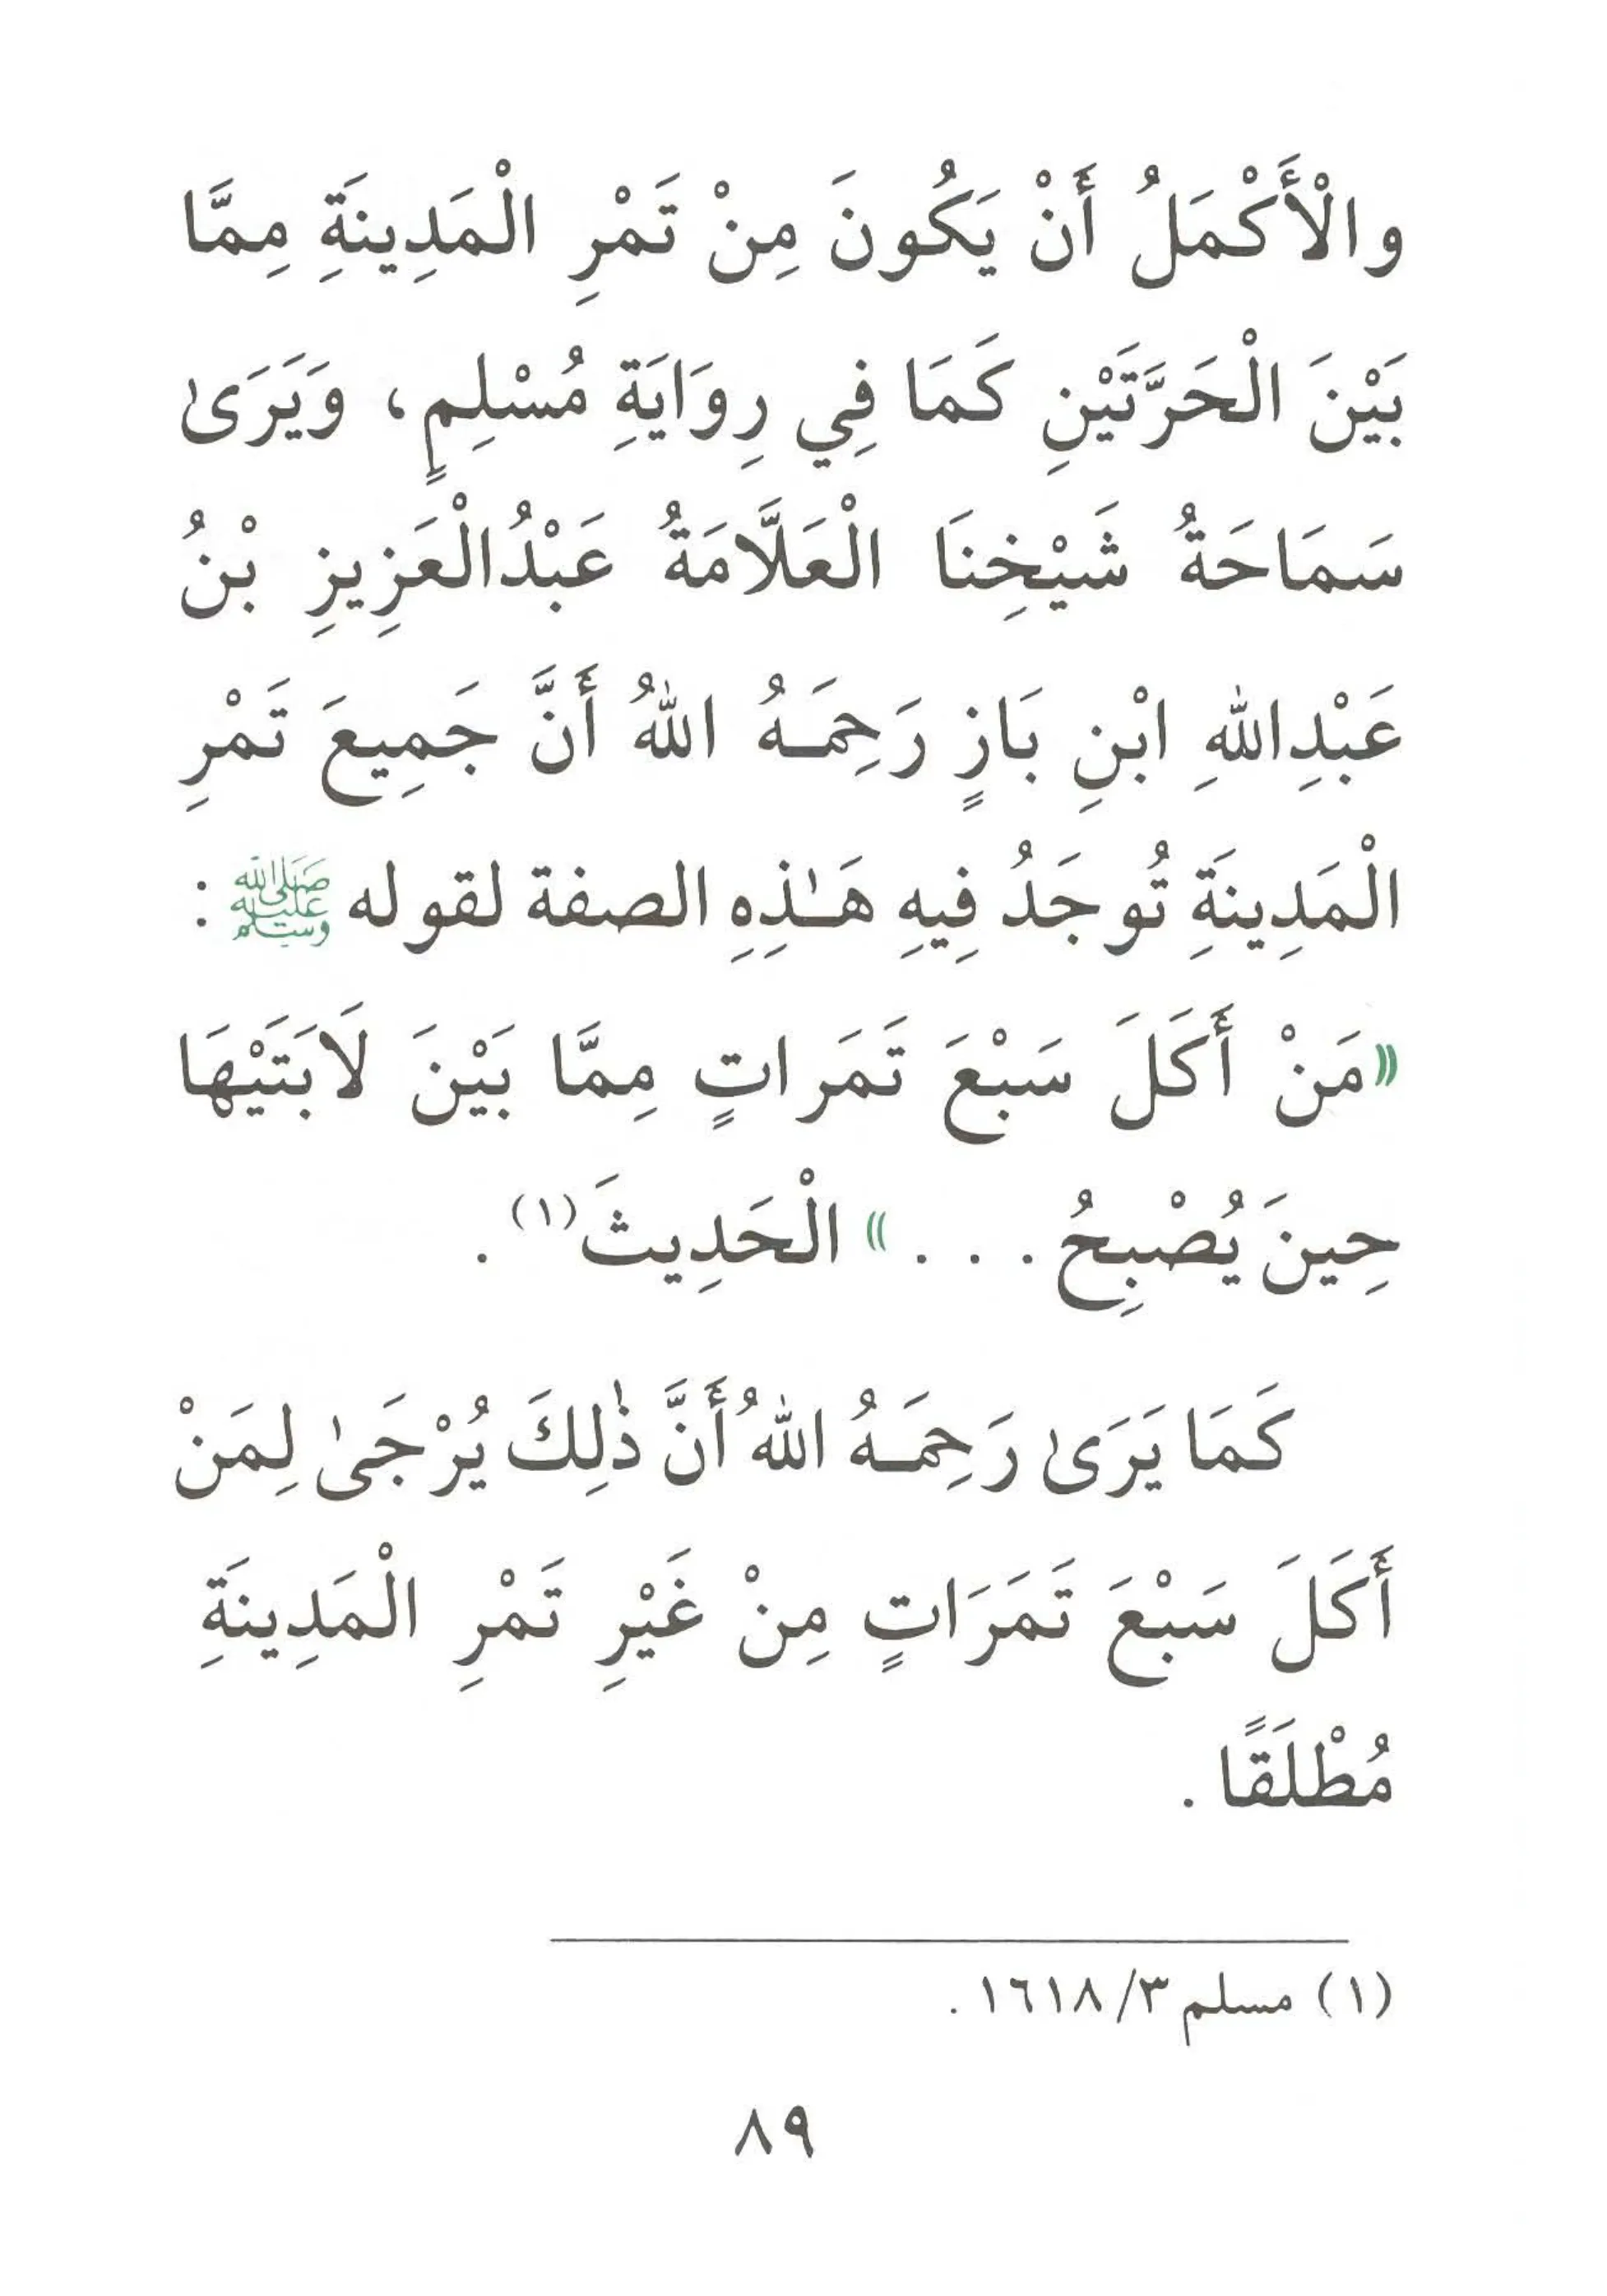 والْأَكْمَلُ أَنْ يَكُونَ مِنْ تَمْرِ الْمَدِينَةِ مِمَّا
بَيْنَ الْحَرَّتَيْنِ كَمَا فِي رِوَايَةِ مُسْلِمٍ، وَيَرَىٰ
سَمَاحَةُ شَيْخِنَا الْعَلَّامَةُ عَبْدُالْعَزِيزِ بْنُ
عَبْدِاللهِ ابْنِ بَازٍ رَحِمَهُ اللهُ أَنَّ جَمِيعَ تَمْرِ
الْمَدِينَةِ تُوجَدُ فِيهِ هَـٰذِهِ الصفة لقوله ﷺ :
«مَنْ أَكَلَ سَبْعَ تَمَراتٍ مِمَّا بَيْنَ لَابَتَيْهَا
حِينَ يُصْبِحُ . . . » الْحَدِيثَ(١) .
كَمَا يَرَىٰ رَحِمَهُ اللهُ أَنَّ ذٰلِكَ يُرْجَىٰ لِمَنْ
أَكَلَ سَبْعَ تَمَرَاتٍ مِنْ غَيْرِ تَمْرِ الْمَدِينَةِ
مُطْلَقًا .
(١) مسلم ٣/ ١٦١٨ .
٨٩